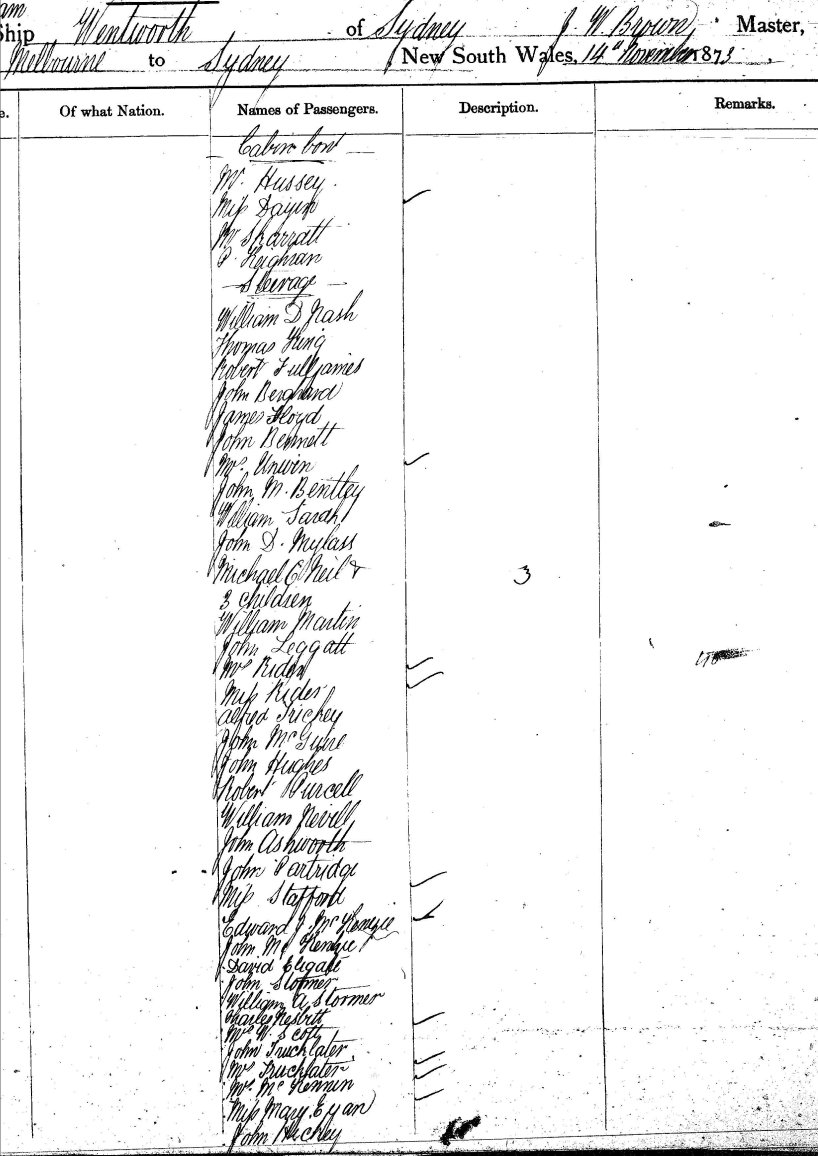 am
Ship Wentworth of Sydney J. W. Brown, Master,
Melbourne to Sydney New South Wales, 14th November 1873.
e. Of what Nation. Names of Passengers. Description. Remarks.
Cabin
Mr. Hussey.
Miss
Mr Sharratt
P. Keighran
Steerage
William D Nash
Thomas King
Robert Fulljames
John Berghard
James Floyd
John Bennett
Mrs. Unwin
John M. Bentley
William Sarah
John D. Mylass
Michael O'Neil & 3
3 children
William Martin
John Leggatt
Mrs Rider
Miss Rider
Alfred Trickey
John McGuire
John Hughes
Robert Purcell
William Nevill
John Ashworth
John Partridge
Miss Stafford
Edward J. McKenzie
John McKenzie
David Eligate
John Stormer
William A Stormer
Charles Nesbitt
Mrs W. Scott
John Truchlater
Mrs Truchlater
Mrs. Mc
Miss Mary
John Hickey